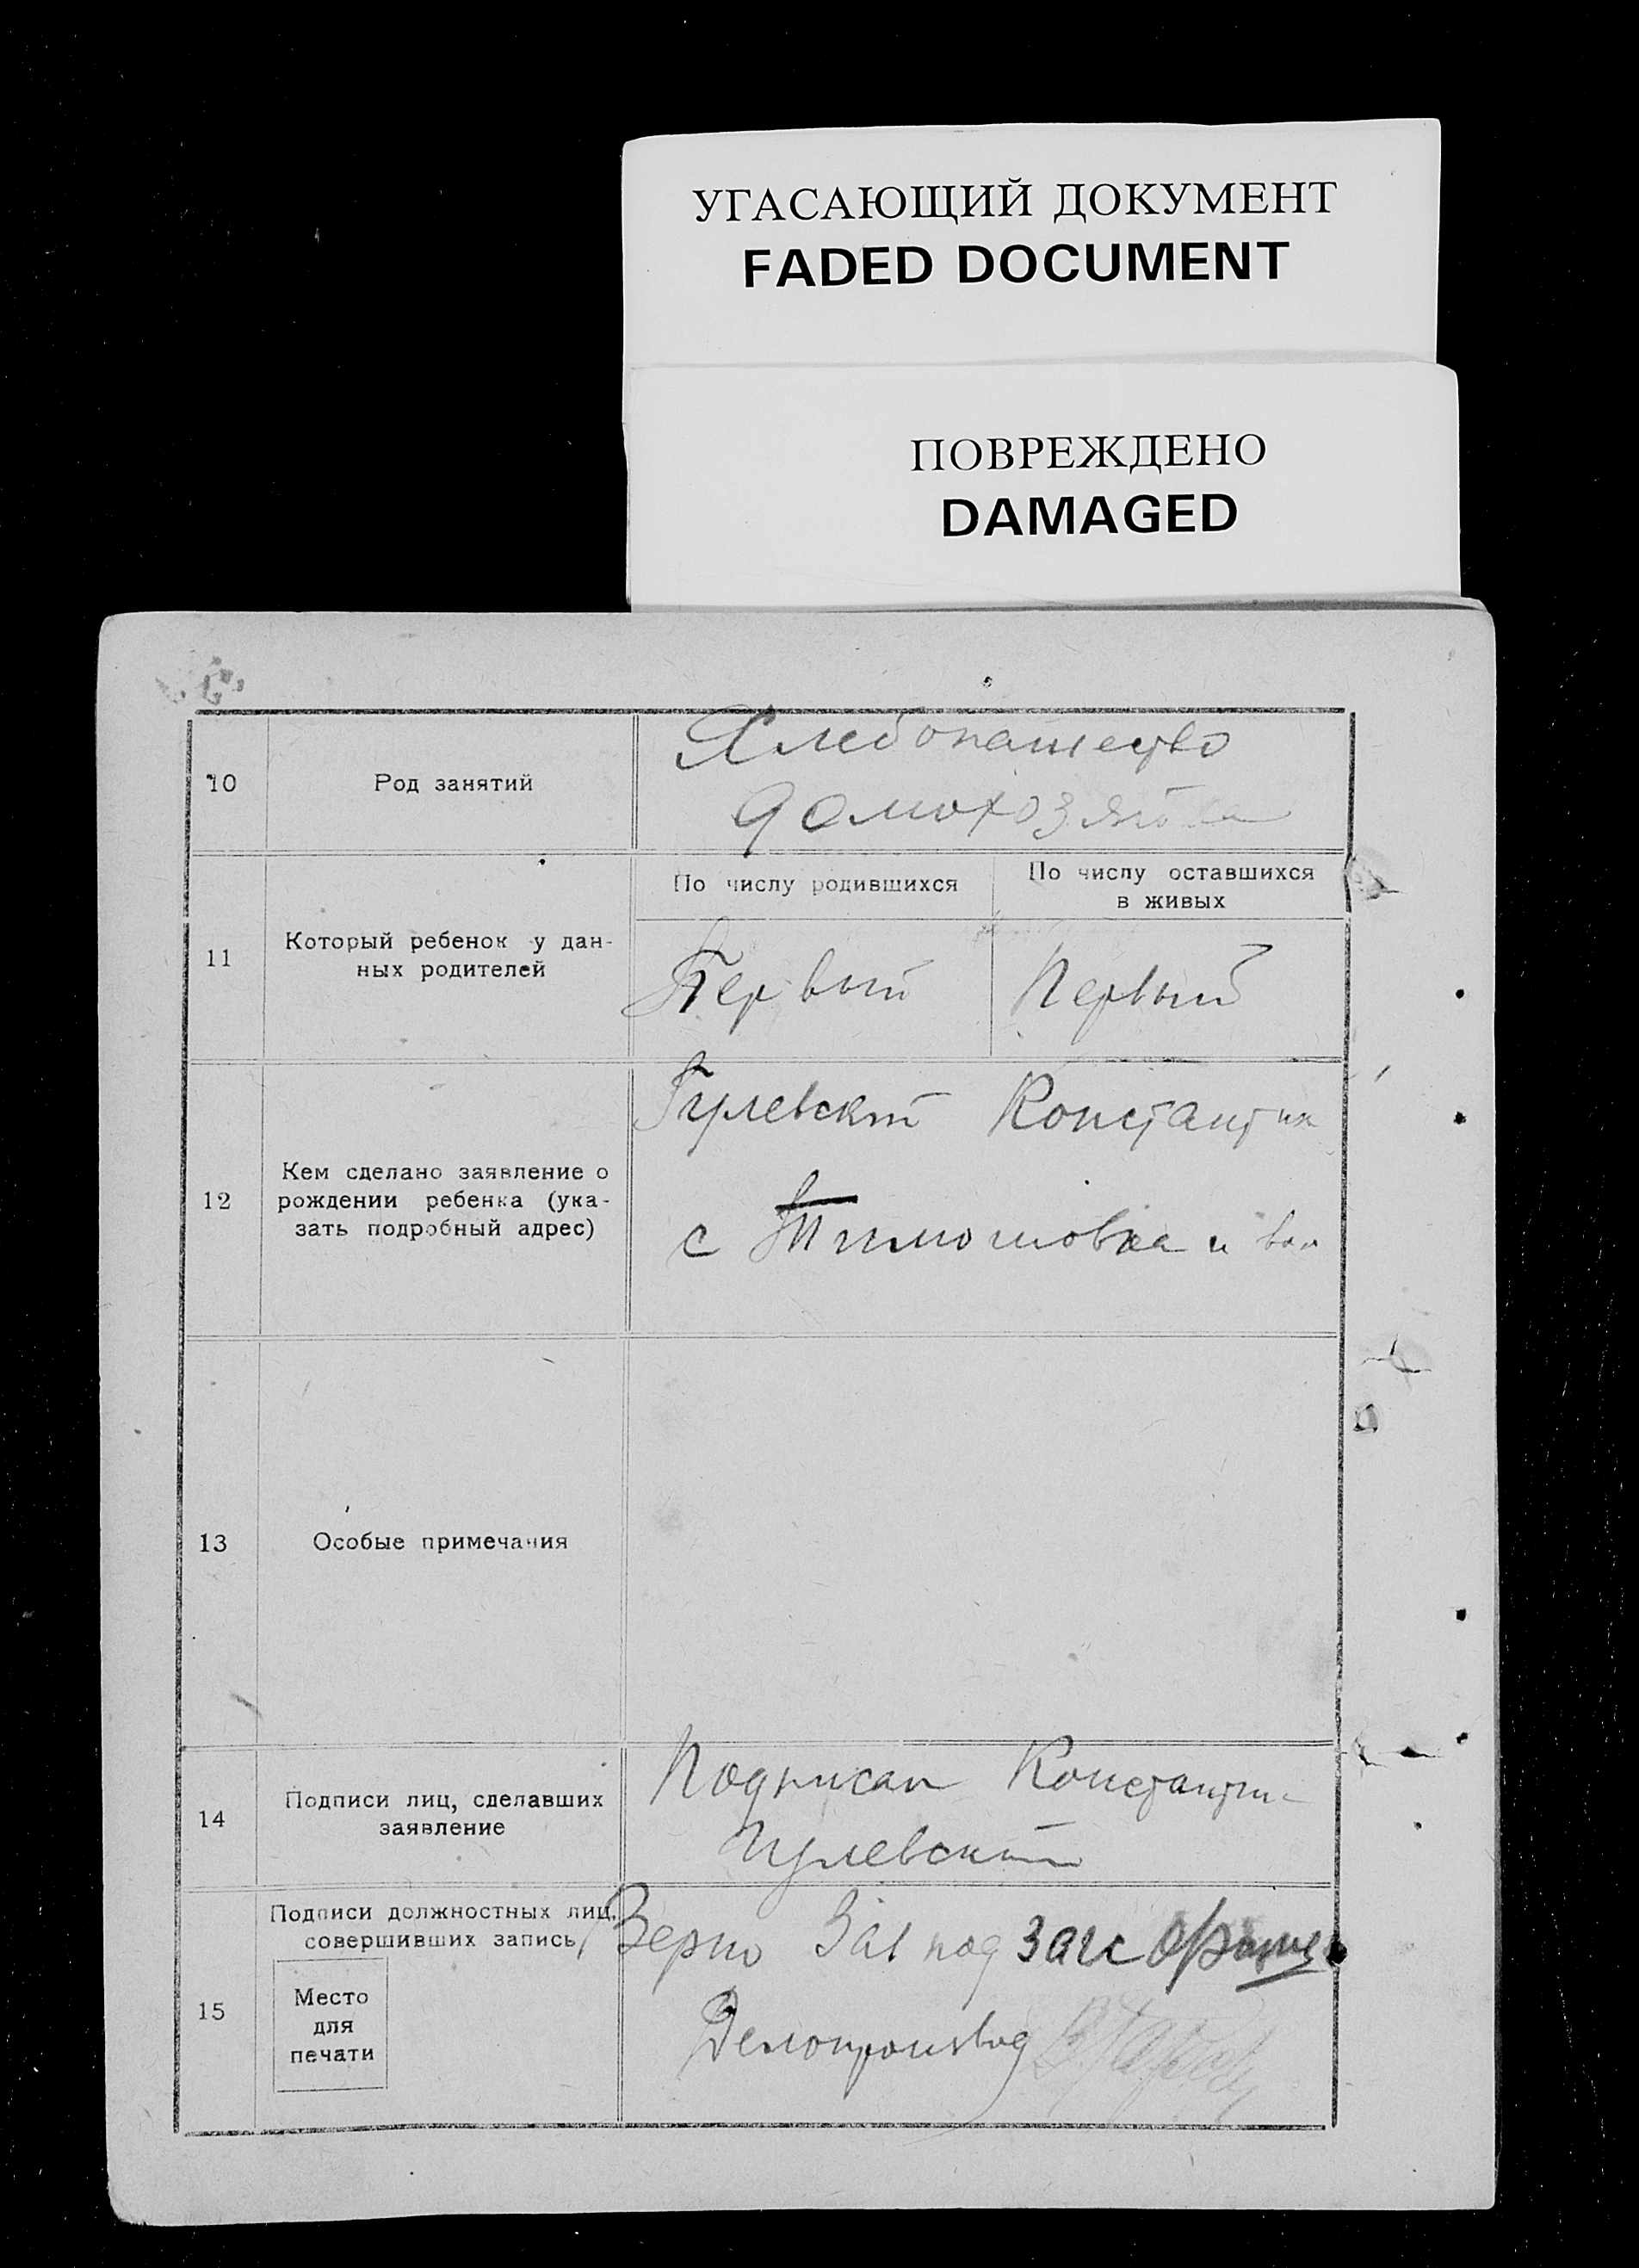 УГАСАЮЩИЙ ДОКУМЕНТ
FADED DOCUMENT
ПОВРЕЖДЕНО
DAMAGED
10
Род занятий
Хлебопашество
домохозяйка
11
Который ребенок у дан-
ных родителей
По числу родившихся
По числу оставшихся
в живых
Первый
Первый
12
Кем сделано заявление о
рождении ребенка (ука-
зать подробный адрес)
Гулевский Константин
с Тимошовка и вол
13
Особые примечания
14
Подписи лиц, сделавших
заявление
Подписал Константин
Гулевский
15
Подписи должностных лиц,
совершивших запись
Место
для
печати
Верно Зав под загс
Делопроизвод